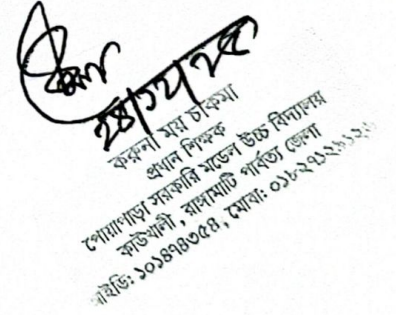 ২৪/১২/২৫
করুনা ময় চাকমা
প্রধান শিক্ষক
পোয়াপাড়া সরকারি মডেল উচ্চ বিদ্যালয়
কাউখালী, রাঙ্গামাটি পার্বত্য জেলা
আইডি: ১০১৪৭৪৩৫৪, মোবা: